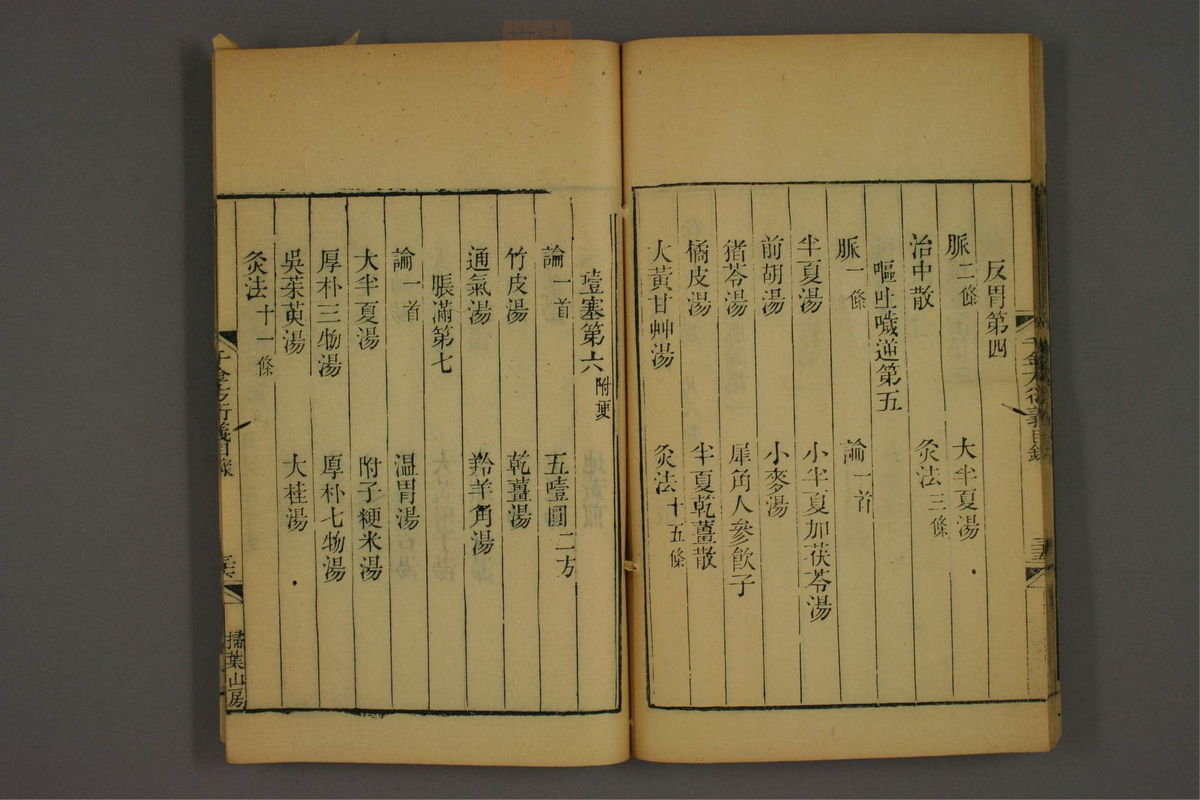 反胃第四
脈二條 大半夏湯
治中散 灸法三條
嘔吐噦逆第五
脈一條 論一首
半夏湯 小半夏加茯苓湯
前胡湯 小麥湯
猪苓湯 犀角人參飲子
橘皮湯 半夏乾薑散
大黃甘艸湯 灸法十五條
噎塞第六附哽
論一首 五噎圓二方
竹皮湯 乾薑湯
通氣湯 羚羊角湯
脹滿第七
論一首 温胃湯
大半夏湯 附子粳米湯
厚朴三物湯 厚朴七物湯
吳茱萸湯 大桂湯
灸法十一條
千金方衍義目錄
掃葉山房